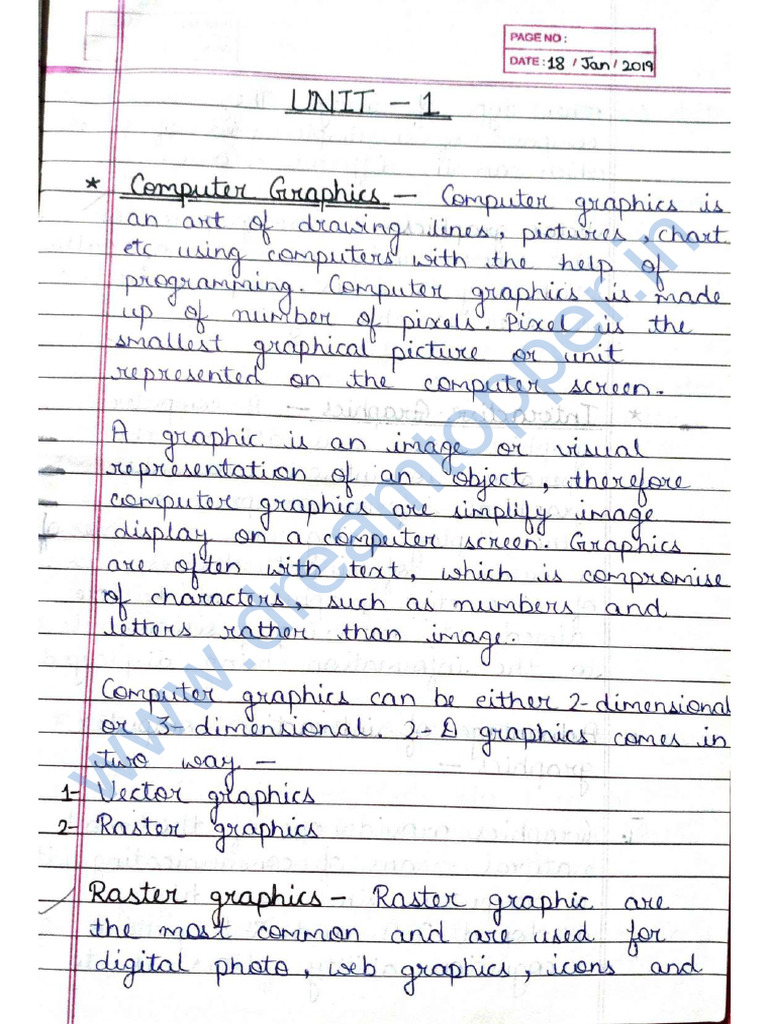 PAGE NO:
DATE: 18 / Jan / 2019
UNIT - 1
* Computer Graphics - Computer graphics is
an art of drawing lines, pictures, chart
etc using computers with the help of
programming. Computer graphics is made
up of number of pixels. Pixel is the
smallest graphical picture or unit
represented on the computer screen.
A graphic is an image or visual
representation of an object, therefore
computer graphics are simplify image
display on a computer screen. Graphics
are often with text, which is compromise
of characters, such as numbers and
letters rather than image.
Computer graphics can be either 2-dimensional
or 3-dimensional. 2-D graphics comes in
two way -
1- Vector graphics
2- Raster graphics
Raster graphics - Raster graphic are
the most common and are used for
digital photo, web graphics, icons and
www.dreamtopper.in